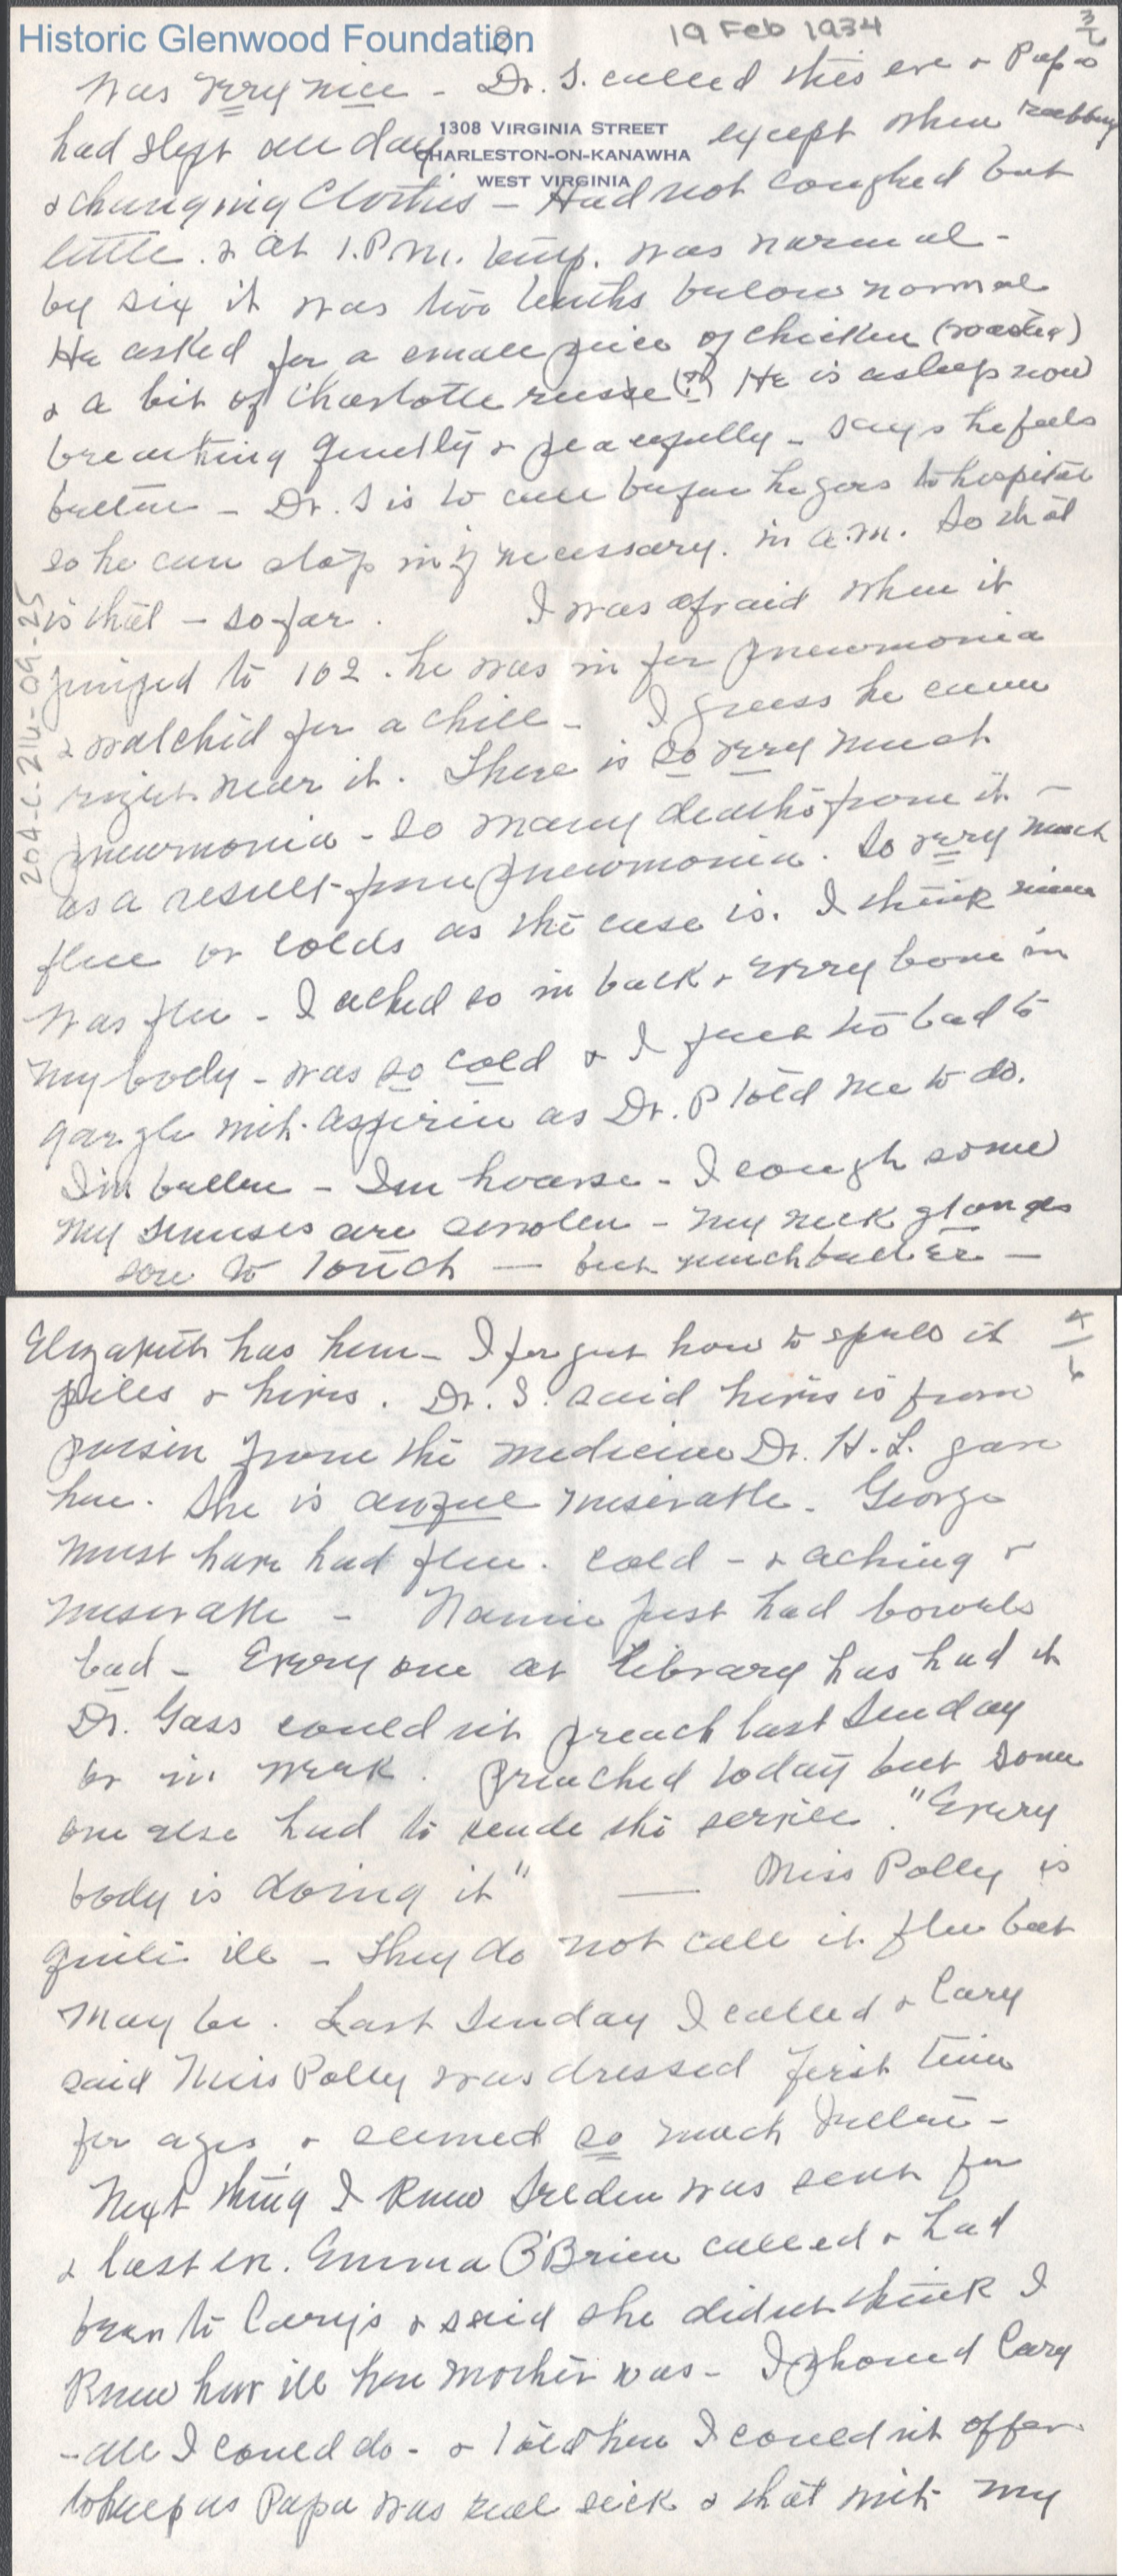 Historic Glenwood Foundation
19 Feb 1934
3/6
was very nice - Dr. S. called this eve & Papa
1308 VIRGINIA STREET
CHARLESTON-ON-KANAWHA
WEST VIRGINIA
had slept all day except when rubbing
& changing Clothes - Had not coughed but
little. & at 1. P.M. temp. was normal -
by six it was two tenths below normal
He asked for a small piece of chicken (roasted)
& a bit of Charlotte russe (?) He is asleep now
breathing quietly & peacefully - says he feels
better - Dr. S is to call before he goes to hospital
so he can stop in if necessary. in a.m. So that
is that - so far. I was afraid when it
jumped to 102. he was in for pneumonia
& watched for a chill - I guess he came
right near it. There is so very much
pneumonia - so many deaths from it -
as a result from pneumonia. So very much
flue or colds as the case is. I think mine
was flu - I ached so in back & every bone in
my body - was so cold & I just had to
gargle with aspirin as Dr. P told me to do.
I'm better - I'm hoarse - I cough some
My sinuses are swolen - my neck glands
sore to touch - but much better -
204-C-214-09-25
4/6
Elizabeth has hem - I forget how to spell it
piles & hives. Dr. S. said hives is from
poisin from the medicine Dr. H. L. gave
her. She is awful miserable. George
must have had flu. cold - & aching &
miserable - Nannie just had bowels
bad - Every one at library has had it
Dr. Gass could nt preach last Sunday
or in week. Preached today but some
one else had to reade the service. "Every
body is doing it" — Miss Polly is
quite ill - They do not call it flu but
may be. Last Sunday I called & Cary
said Miss Polly was dressed first time
for ages & seemed so much better -
Next thing I knew was sent for
& last eve. Emma O'Brien called & had
been to Cary's & said she didn't think I
knew how ill her mother was - I phoned Cary
- all I could do - & told her I could nt offer
to help as Papa was real sick & that with my